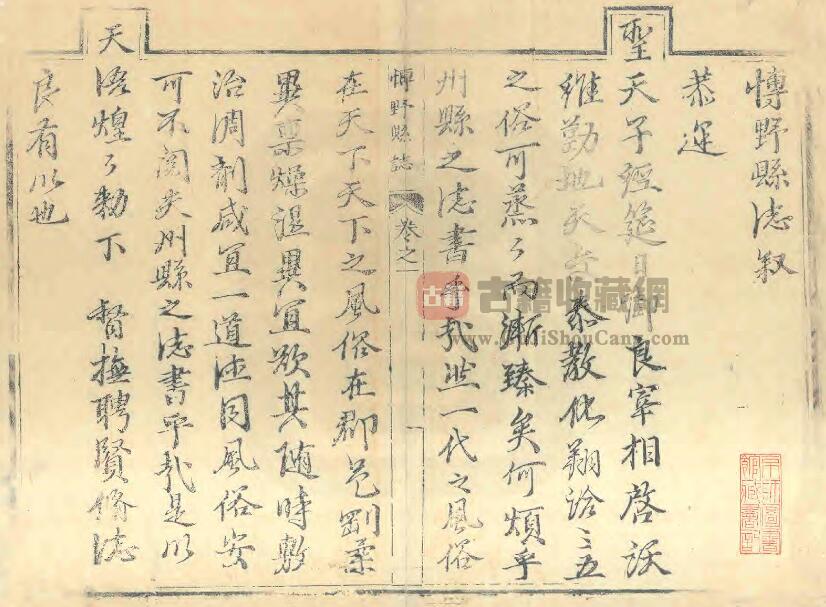 慱野縣誌叙
恭逆
聖天子經筵日御良宰相啓沃
維勤地天交泰教化翔洽三五
之俗可蒸々而漸臻矣何煩乎
州縣之志書乎哉然一代之風俗
慱野縣誌 卷之一
在天下天下之風俗在郡邑剛柔
異稟燥溼異宜欲其随時敷
治凋劑咸宜一道德同風俗安
可不閱夫州縣之志書乎哉是以
天語煌々勅下 督撫聘賢脩志
良有以也
古籍收藏网
www.GuJiShouCang.com
京師圖書
館藏書記